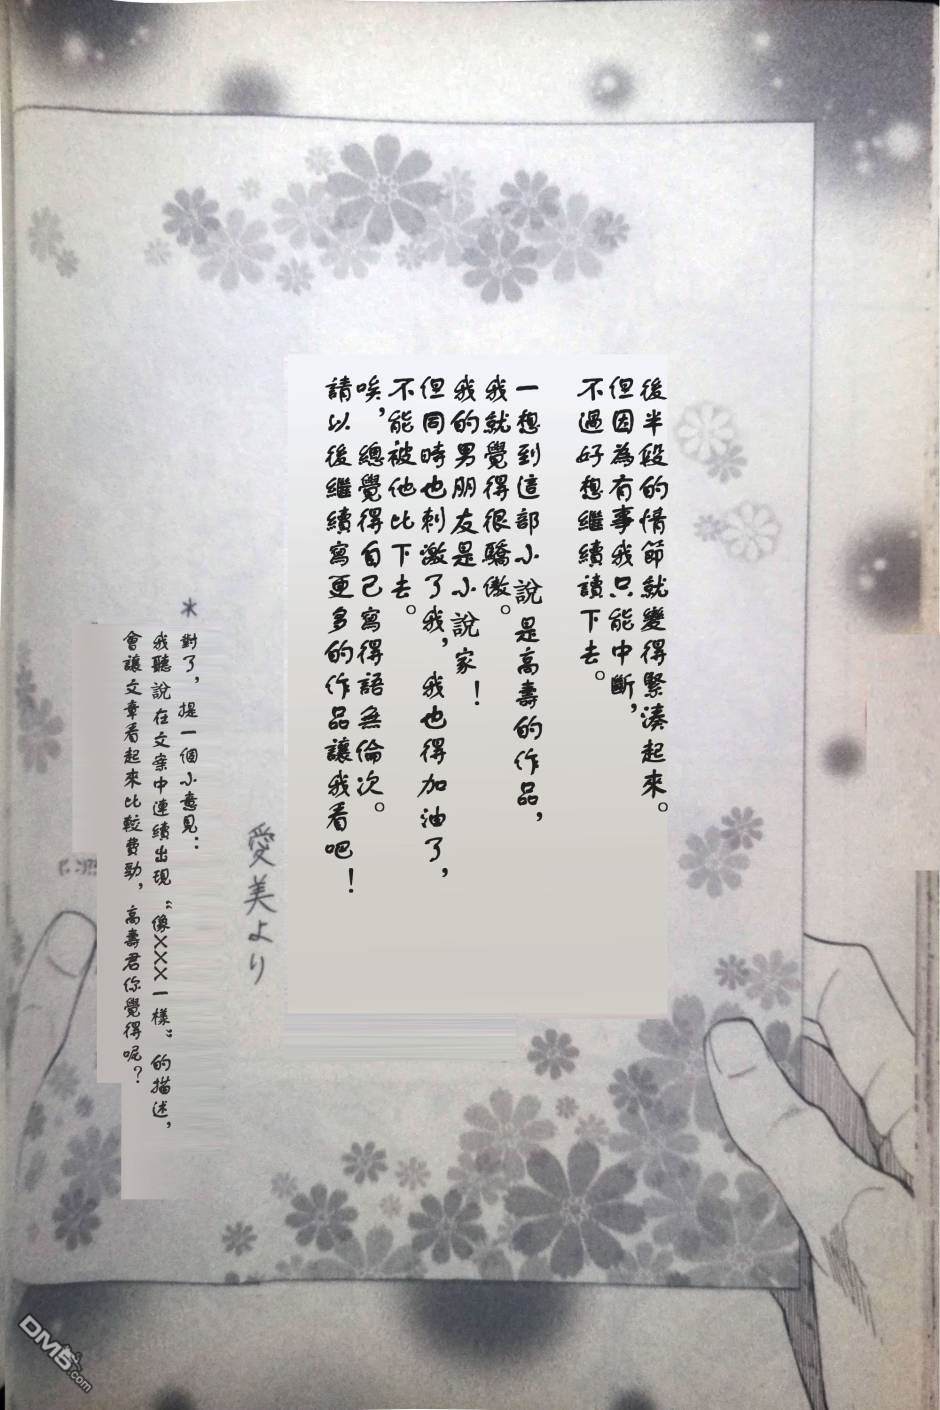 後半段的情節就變得緊湊起來。
但因為有事我只能中斷，
不過好想繼續讀下去。
一想到這部小說是高壽的作品，
我就覺得很驕傲。
我的男朋友是小說家！
但同時也刺激了我，我也得加油了，
不能被他比下去。
唉，總覺得自己寫得語無倫次。
請以後繼續寫更多的作品讓我看吧！
愛美より
＊對了，提一個小意見：
我聽說在文案中連續出現“像×××一樣”的描述，
會讓文章看起來比較費勁，高壽君你覺得呢？
DM5.com